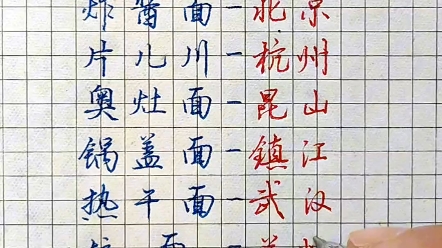 炸酱面-北京
片儿川-杭州
奥灶面-昆山
锅盖面-鎮江
热干面-武汉
面-